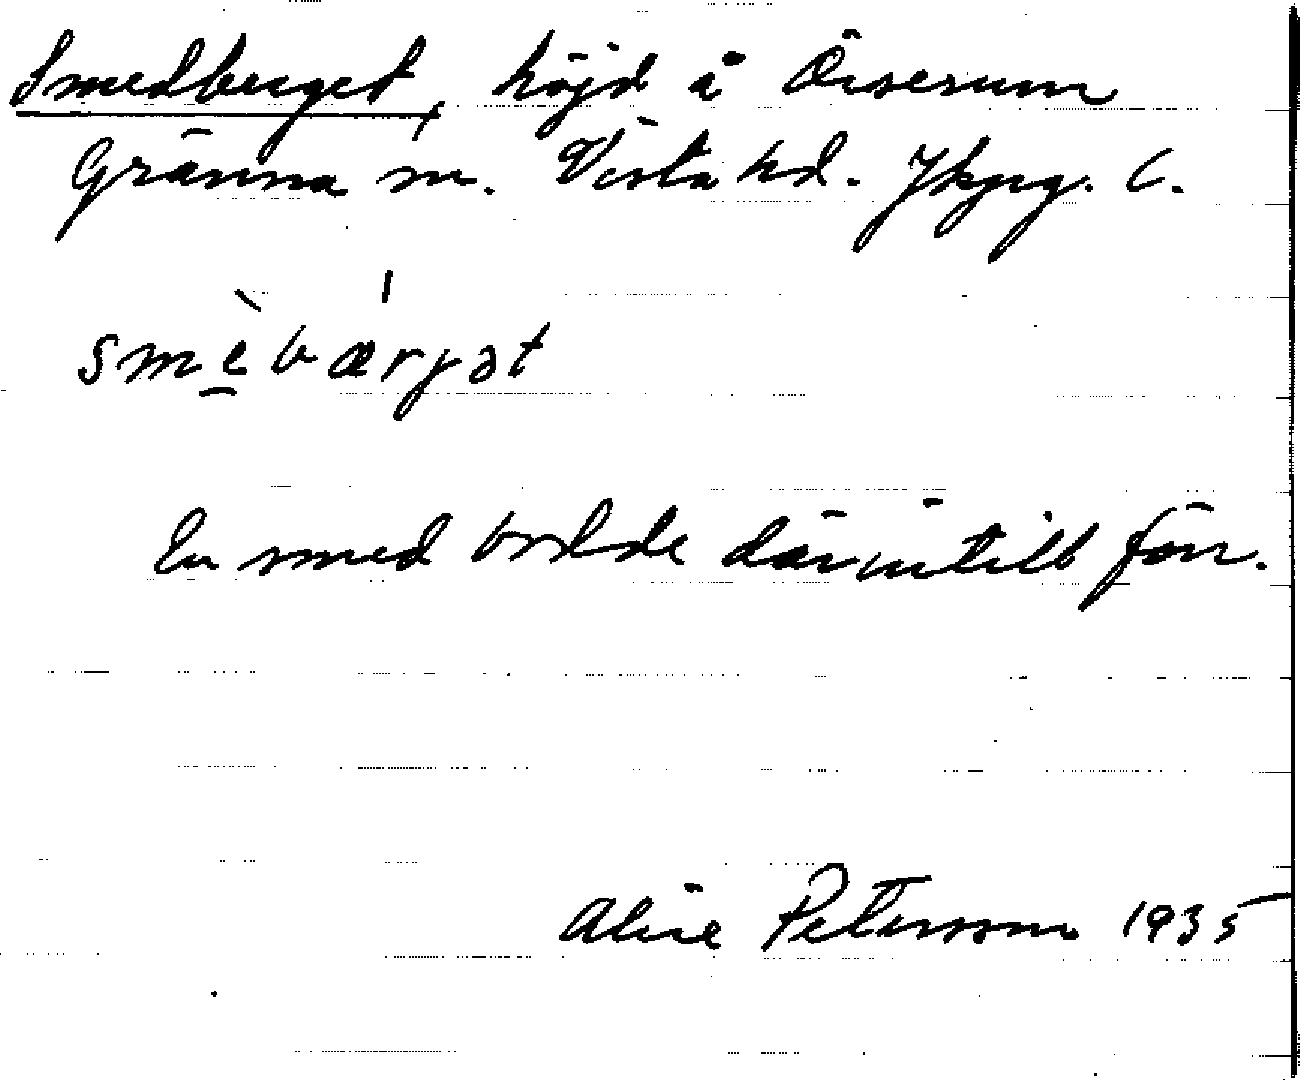 Smedberget, höjd å Örserum
Gränna sn. Vista hd. Jkpg. l.
smèbærjət
En smed bodde därintill förr.
Alice Petersson 1935